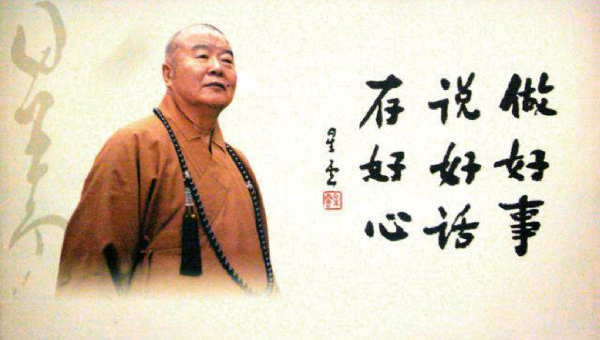 做好事
说好话
存好心
星雲